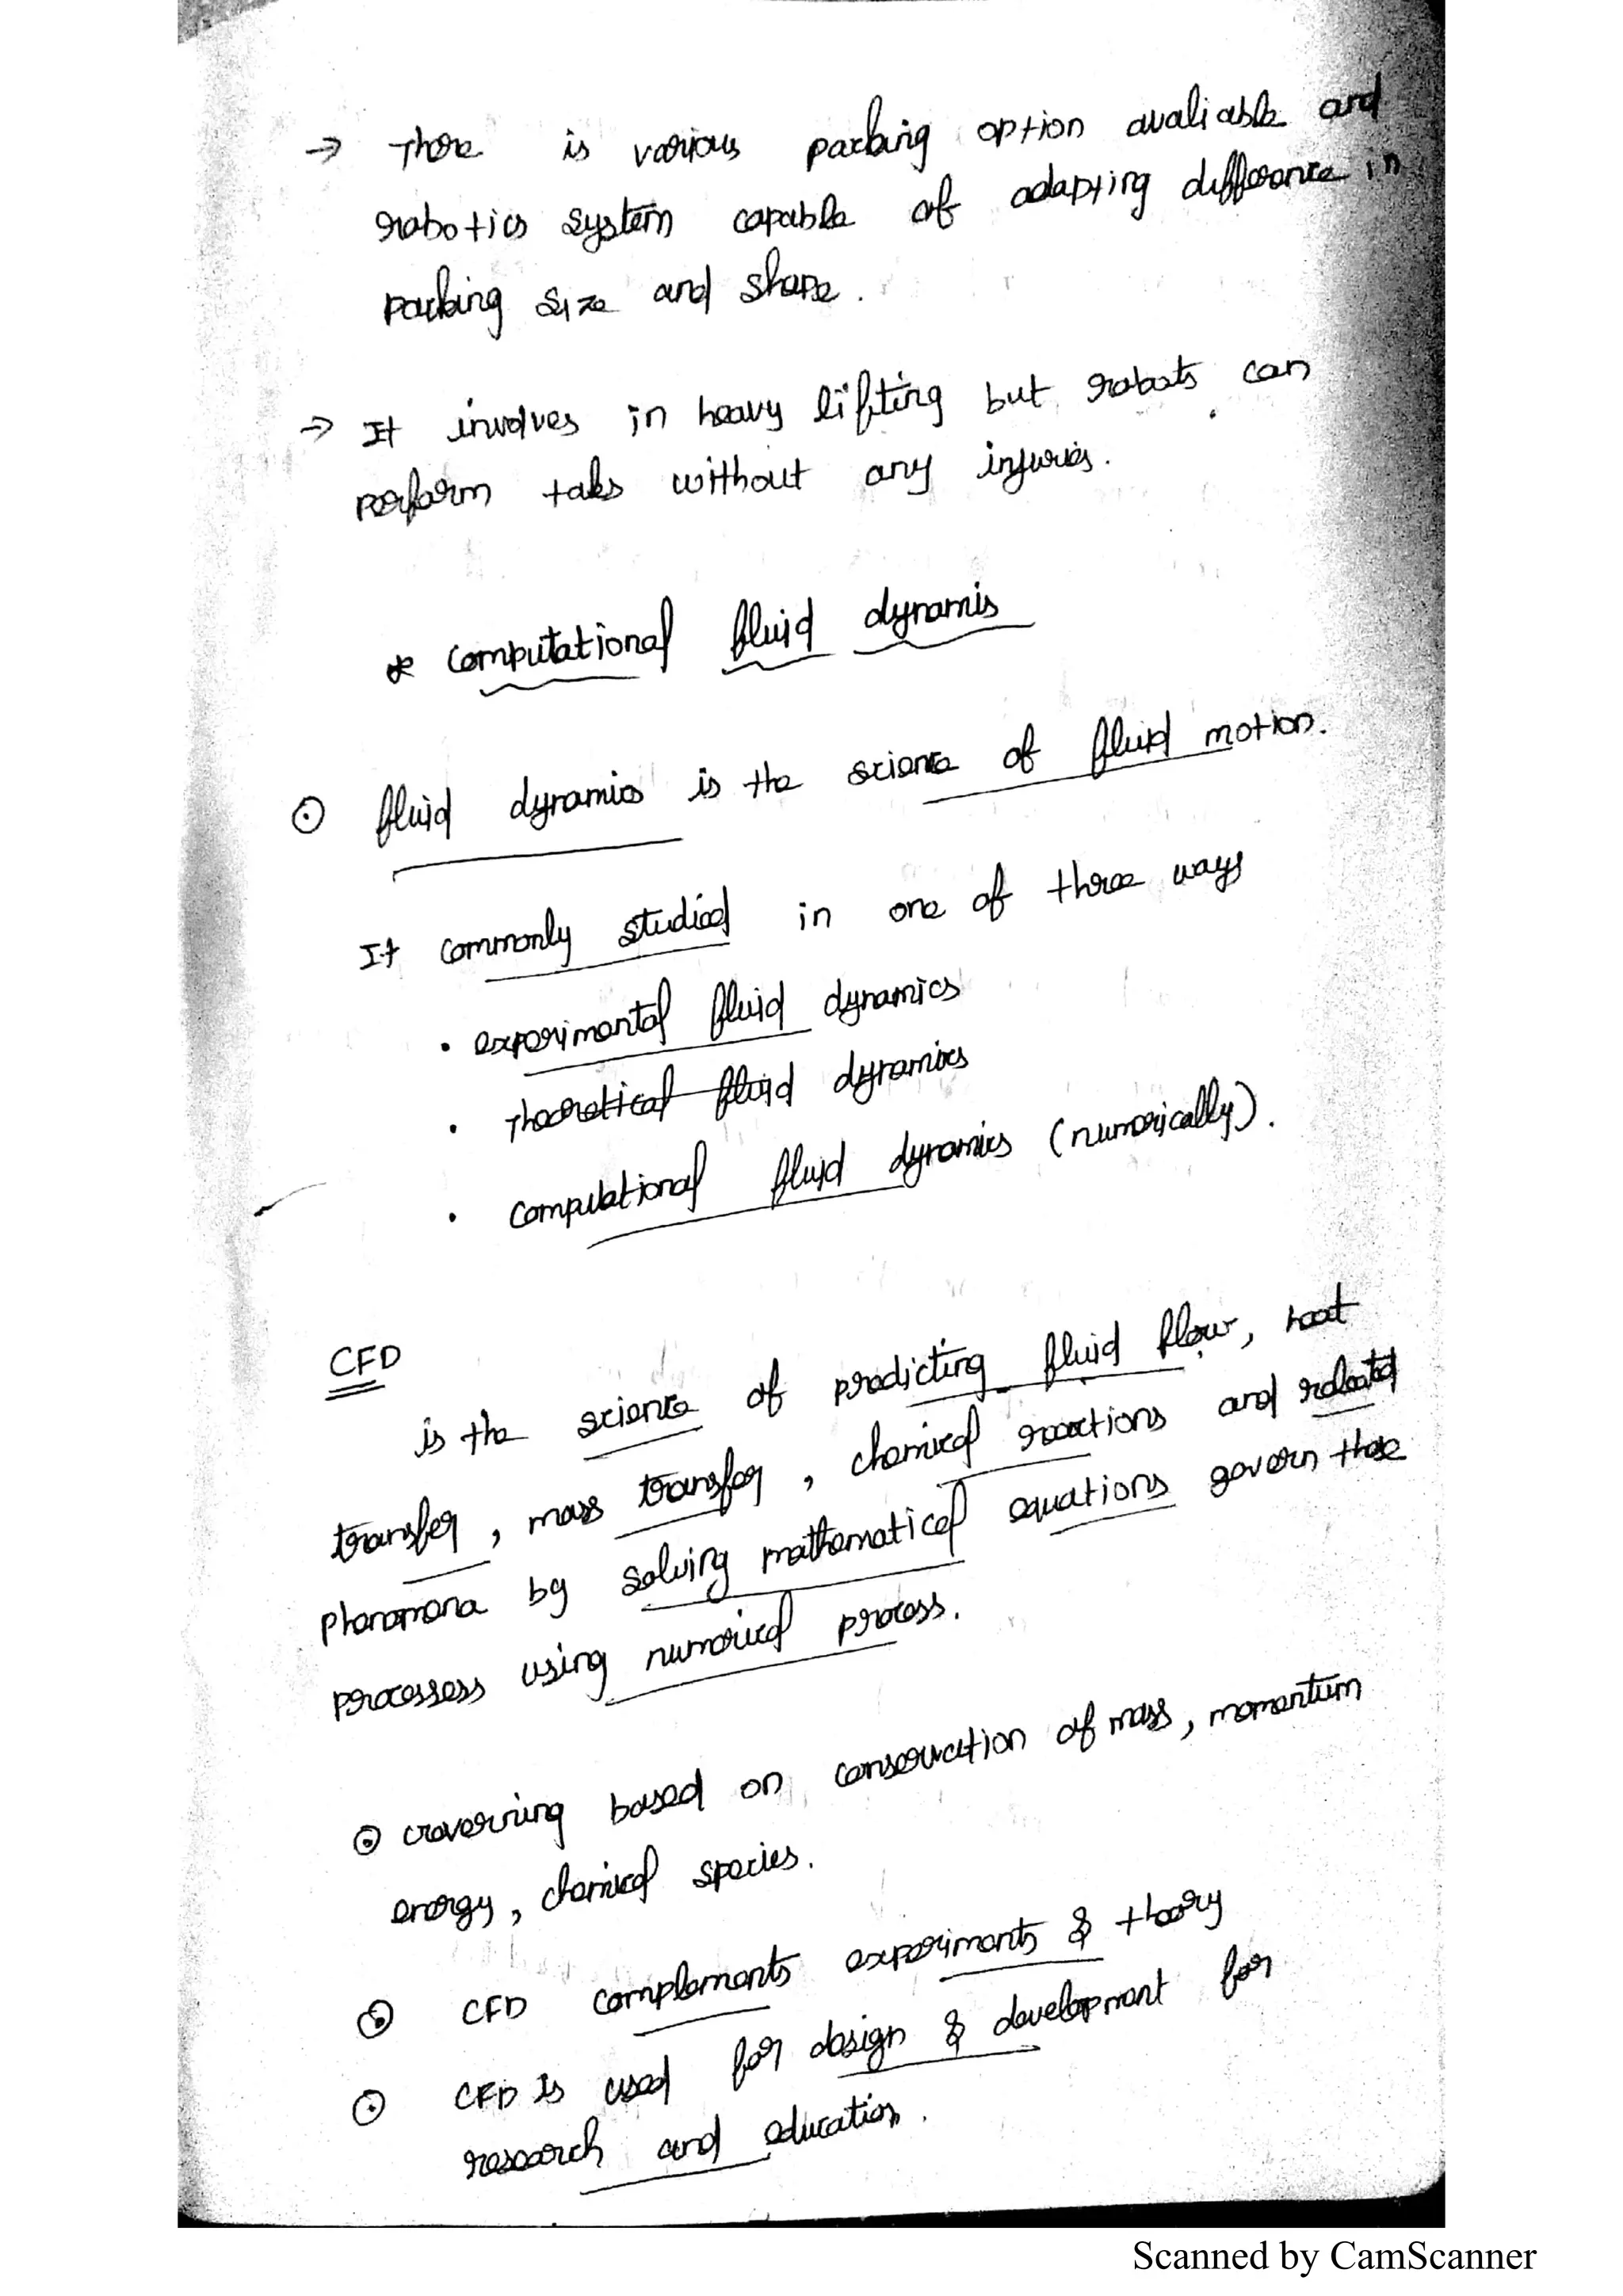 → There is various packing option avaliable and
robotics system capable of adapting difference in
packing size and shape.
→ It involves in heavy lifting but robots can
perform taks without any injuries.
* computational fluid dynamis
⊙ fluid dynamics is the science of fluid motion.
It commonly studied in one of three ways
• experimental fluid dynamics
• Theoretical fluid dynamics
• computational fluid dynamics (numerically).
CFD
is the science of predicting fluid flow, heat
transfer, mass transfer, chemical reactions and related
phenomena by solving mathematical equations govern these
processess using numerical process.
⊙ Governing based on conservation of mass, momentum
energy, chemical species.
⊙ CFD complements experiments & theory
⊙ CFD is used for design & development for
research and education.
Scanned by CamScanner